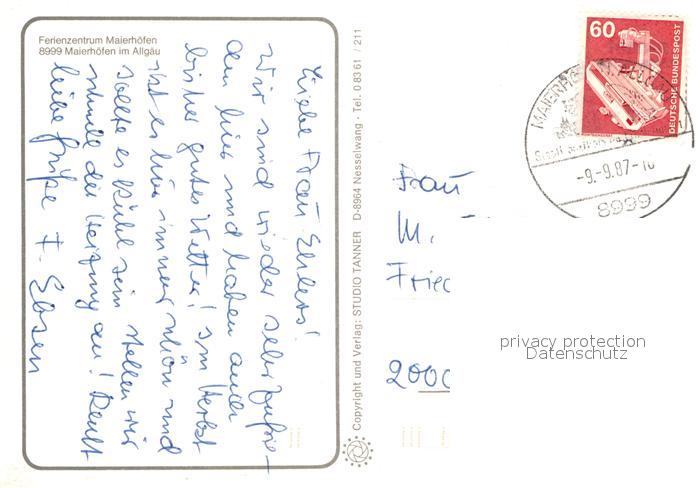 Ferienzentrum Maierhöfen
8999 Maierhöfen im Allgäu
Liebe Frau Ehlers!
Wir sind wieder sehr zufrie-
den hier und haben auch
bisher gutes Wetter! Im Herbst
ist es hier immer schön und
sollte es kühl sein stellen wir
die Heizung an!
liebe Grüße F. Ebsen
Copyright und Verlag: STUDIO TANNER D-8964 Nesselwang · Tel. 0 83 61 / 211
60
DEUTSCHE BUNDESPOST
MAIERHÖFEN
-9.-9.87-16
8999
Frau
M.
Fried
2000
privacy protection
Datenschutz